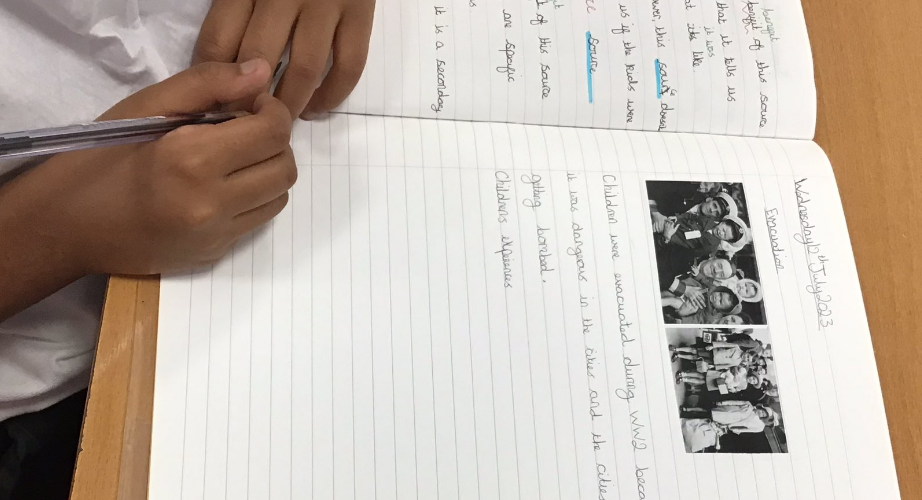 of this source
that it tells us
it was
like
this source doesnt
us if the kids were
source
of this source
are specific
it is a secondary
Wednesday 12th July 2023
Evacuation
Children were evacuated during WW2 beca
it was dangerous in the cities and the cities
getting bombed.
Childrens experiences